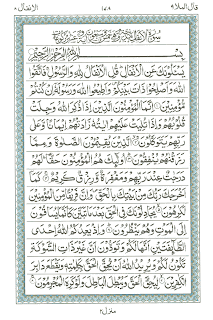 قال الملا ٩
الانفال ٨
بسم الله الرحمن الرحيم
يَسْـَٔلُوْنَكَ عَنِ الْاَنْفَالِ ؕ قُلِ الْاَنْفَالُ لِلّٰهِ وَالرَّسُوْلِ ۚ فَاتَّقُوا
اللّٰهَ وَاَصْلِحُوْا ذَاتَ بَيْنِكُمْ ۪ وَاَطِيْعُوا اللّٰهَ وَرَسُوْلَهٗۤ اِنْ كُنْتُمْ
مُّؤْمِنِيْنَ ۝ اِنَّمَا الْمُؤْمِنُوْنَ الَّذِيْنَ اِذَا ذُكِرَ اللّٰهُ وَجِلَتْ
قُلُوْبُهُمْ وَاِذَا تُلِيَتْ عَلَيْهِمْ اٰيٰتُهٗ زَادَتْهُمْ اِيْمَانًا وَّعَلٰى
رَبِّهِمْ يَتَوَكَّلُوْنَ ۝ الَّذِيْنَ يُقِيْمُوْنَ الصَّلٰوةَ وَمِمَّا
رَزَقْنٰهُمْ يُنْفِقُوْنَ ۝ اُولٰٓئِكَ هُمُ الْمُؤْمِنُوْنَ حَقًّا ؕ لَهُمْ
دَرَجٰتٌ عِنْدَ رَبِّهِمْ وَمَغْفِرَةٌ وَّرِزْقٌ كَرِيْمٌ ۝ كَمَاۤ
اَخْرَجَكَ رَبُّكَ مِنْۢ بَيْتِكَ بِالْحَقِّ ۪ وَاِنَّ فَرِيْقًا مِّنَ الْمُؤْمِنِيْنَ
لَكٰرِهُوْنَ ۝ يُجَادِلُوْنَكَ فِي الْحَقِّ بَعْدَ مَا تَبَيَّنَ كَاَنَّمَا يُسَاقُوْنَ
اِلَى الْمَوْتِ وَهُمْ يَنْظُرُوْنَ ۝ وَاِذْ يَعِدُكُمُ اللّٰهُ اِحْدَى
الطَّآئِفَتَيْنِ اَنَّهَا لَكُمْ وَتَوَدُّوْنَ اَنَّ غَيْرَ ذَاتِ الشَّوْكَةِ
تَكُوْنُ لَكُمْ وَيُرِيْدُ اللّٰهُ اَنْ يُّحِقَّ الْحَقَّ بِكَلِمٰتِهٖ وَيَقْطَعَ دَابِرَ
الْكٰفِرِيْنَ ۝ لِيُحِقَّ الْحَقَّ وَيُبْطِلَ الْبَاطِلَ وَلَوْ كَرِهَ الْمُجْرِمُوْنَ ۝
منزل ٢